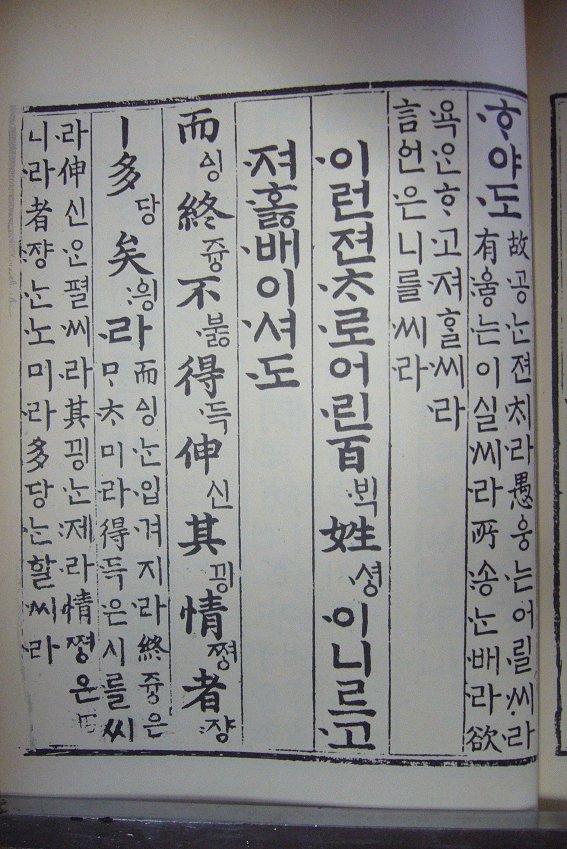 ᄒᆞ야도
故공ᄂᆞᆫ젼ᄎᆡ라愚웅는어릴씨라
有우ᇢ는이실씨라所송ᄂᆞᆫ배라欲
욕ᄋᆞᆫᄒᆞ고져ᄒᆞᆯ씨라
言언은니를씨라
이런젼ᄎᆞ로어린百ᄇᆡᆨ姓셔ᇰ이니르고
져호ᇙ배이셔도
而ᅀᅵᆼ終쥬ᇰ不부ᇙ得득伸신其끵情쪄ᇰ者쟝
ㅣ多당矣ᅌᅴᆼ라
而ᅀᅵᆼᄂᆞᆫ입겨지라終쥬ᇰ은
ᄆᆞᄎᆞ미라得득은시를씨
라伸신ᄋᆞᆫ펼씨라其끵ᄂᆞᆫ제라情쪄ᇰ은
니라者쟝ᄂᆞᆫ노미라多당ᄂᆞᆫ할씨라